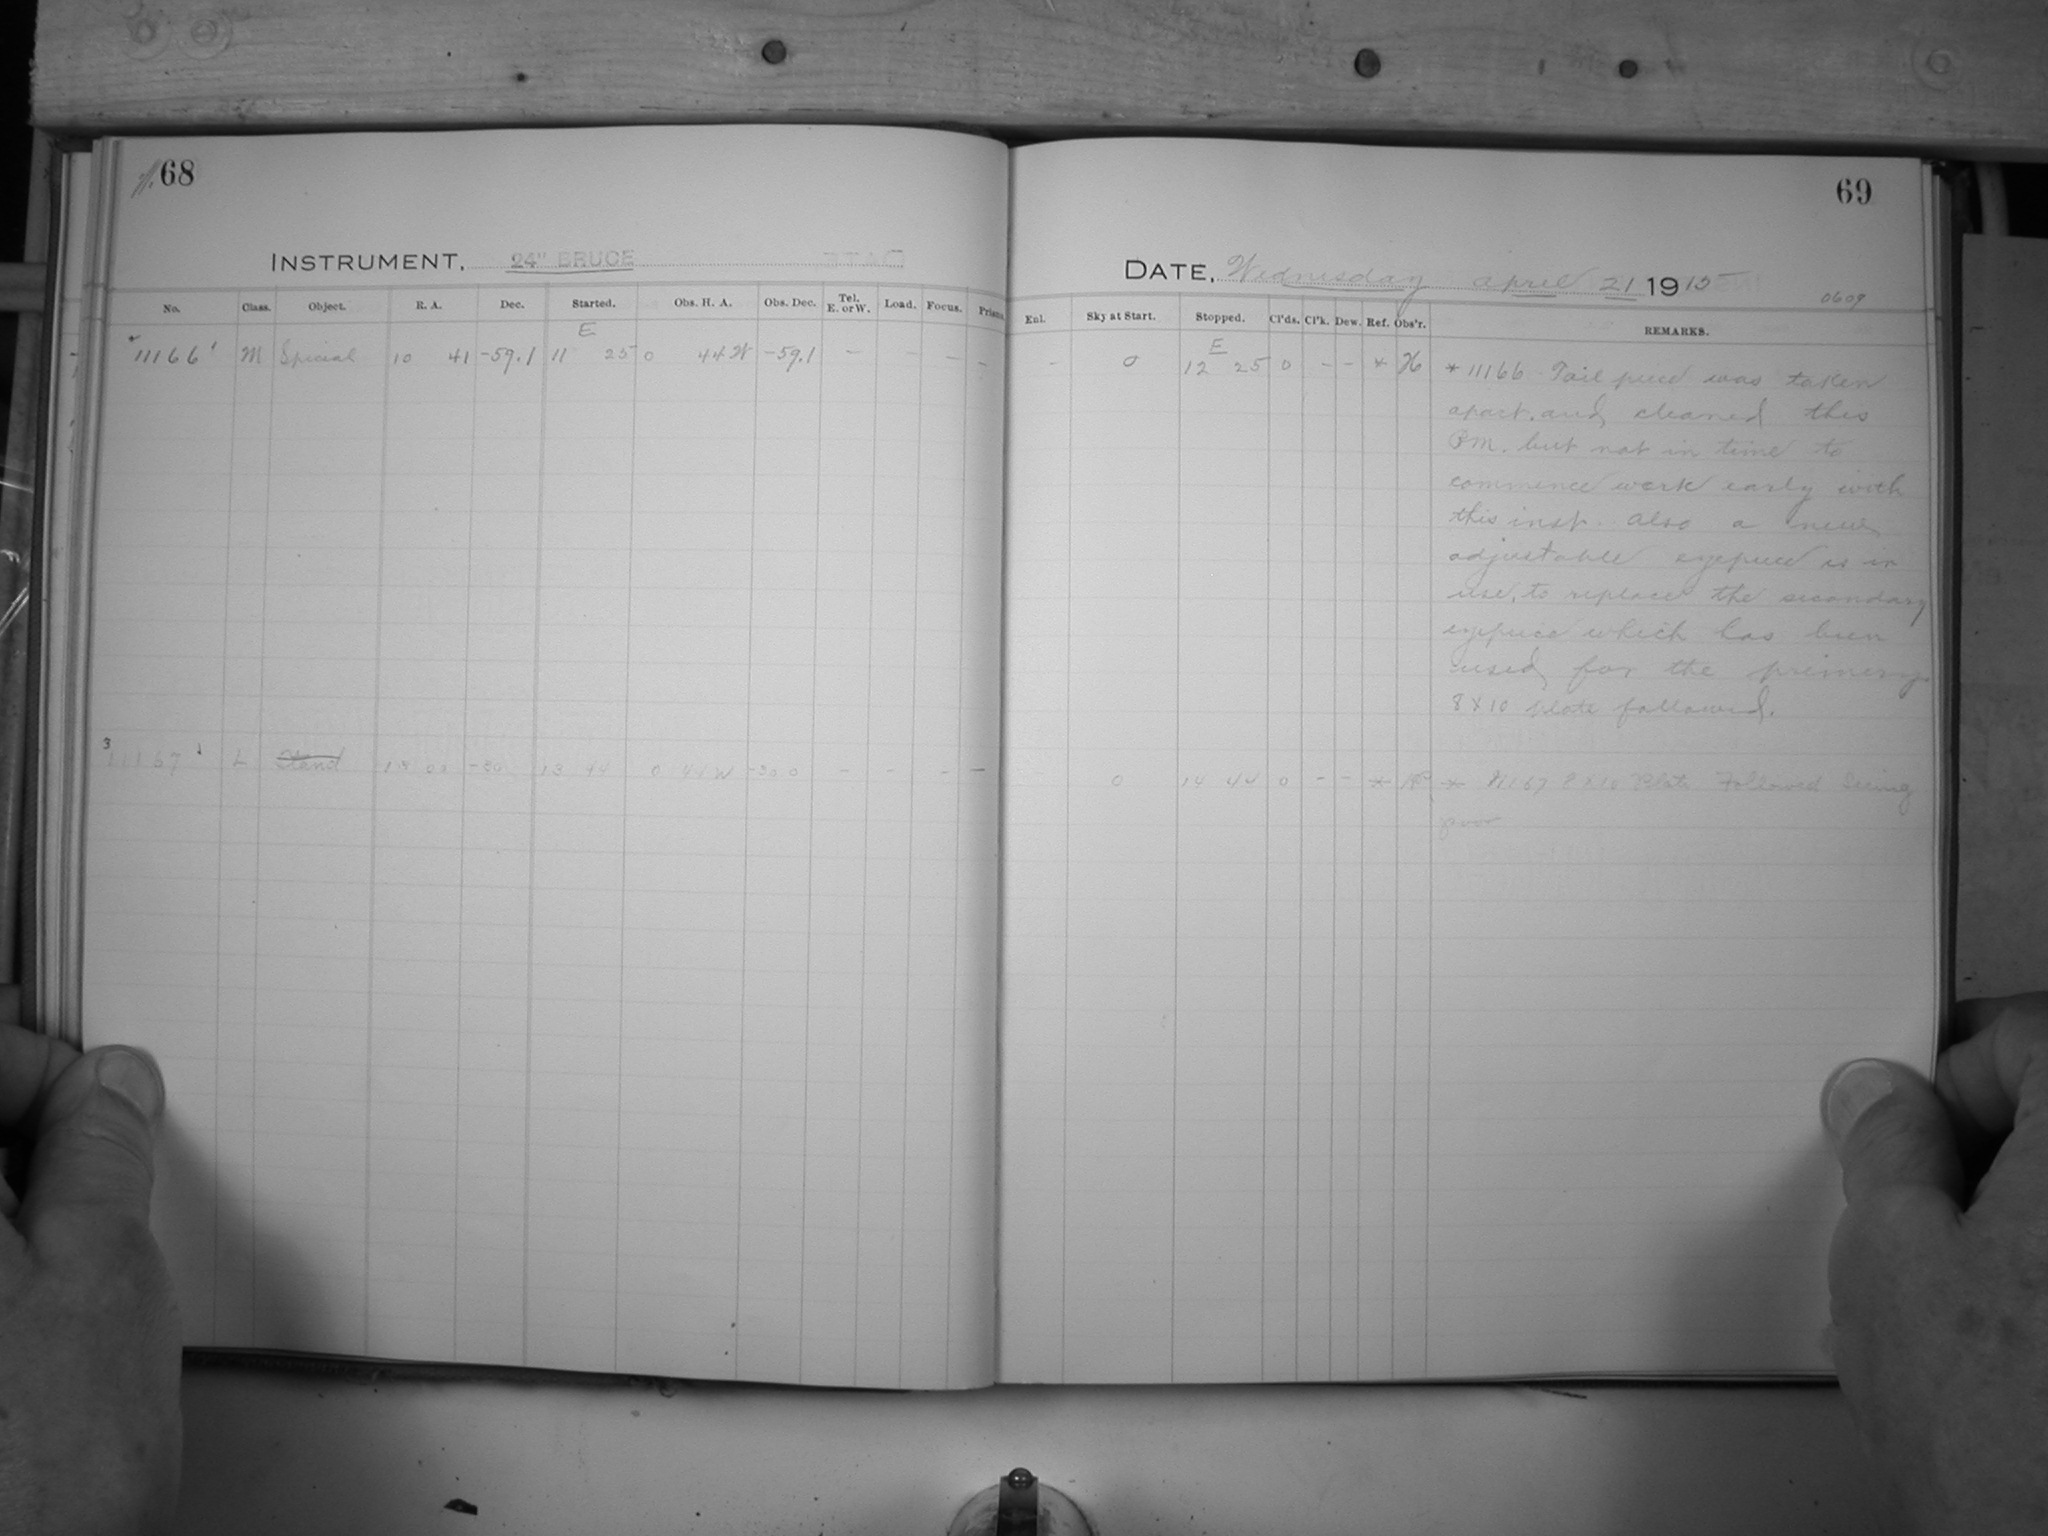 68
INSTRUMENT, 24" BRUCE
No. Class. Object. R. A. Dec. Started. Obs. H. A. Obs. Dec. Tel. E. or W. Load. Focus. Prism.
E
11166 M Special 10 41 -59.1 11 25 0 44 W -59.1 - - - -
3 11167 L Stand 13 00 -30 13 44 0 44 W -30 0 - - - -
69
DATE, Wednesday april 21 1915
0609
Enl. Sky at Start. Stopped. Cl'ds. Cl'k. Dew. Ref. Obs'r. REMARKS.
E
- 0 12 25 0 - - * H * 11166 Tail piece was taken
apart. and cleaned this
P.M. but not in time to
commence work early with
this inst. also a new
adjustable eyepiece is in
use, to replace the secondary
eyepiece which has been
used for the primary
8 x 10 plate followed.
0 14 44 0 - - * * 11167 8 x 10 Plate Followed Seeing
poor